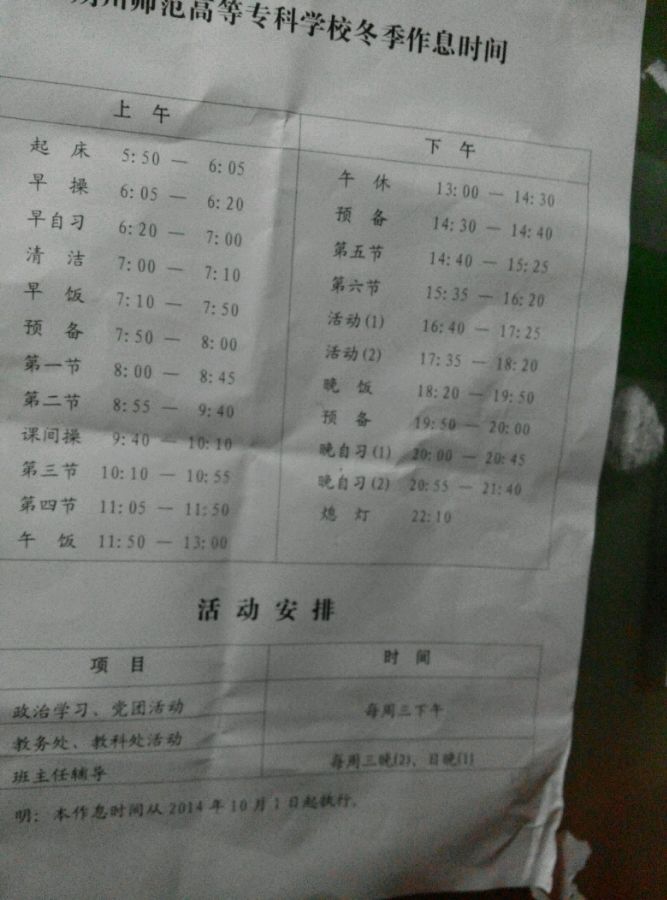 州师范高等专科学校冬季作息时间
上 午
起 床 5:50 — 6:05
早 操 6:05 — 6:20
早自习 6:20 — 7:00
清 洁 7:00 — 7:10
早 饭 7:10 — 7:50
预 备 7:50 — 8:00
第一节 8:00 — 8:45
第二节 8:55 — 9:40
课间操 9:40 — 10:10
第三节 10:10 — 10:55
第四节 11:05 — 11:50
午 饭 11:50 — 13:00
下 午
午 休 13:00 — 14:30
预 备 14:30 — 14:40
第五节 14:40 — 15:25
第六节 15:35 — 16:20
活动(1) 16:40 — 17:25
活动(2) 17:35 — 18:20
晚 饭 18:20 — 19:50
预 备 19:50 — 20:00
晚自习(1) 20:00 — 20:45
晚自习(2) 20:55 — 21:40
熄 灯 22:10
活 动 安 排
项 目 时 间
政治学习、党团活动 每周三下午
教务处、教科处活动
班主任辅导 每周三晚(2)、日晚(1)
明: 本作息时间从2014年10月1日起执行。